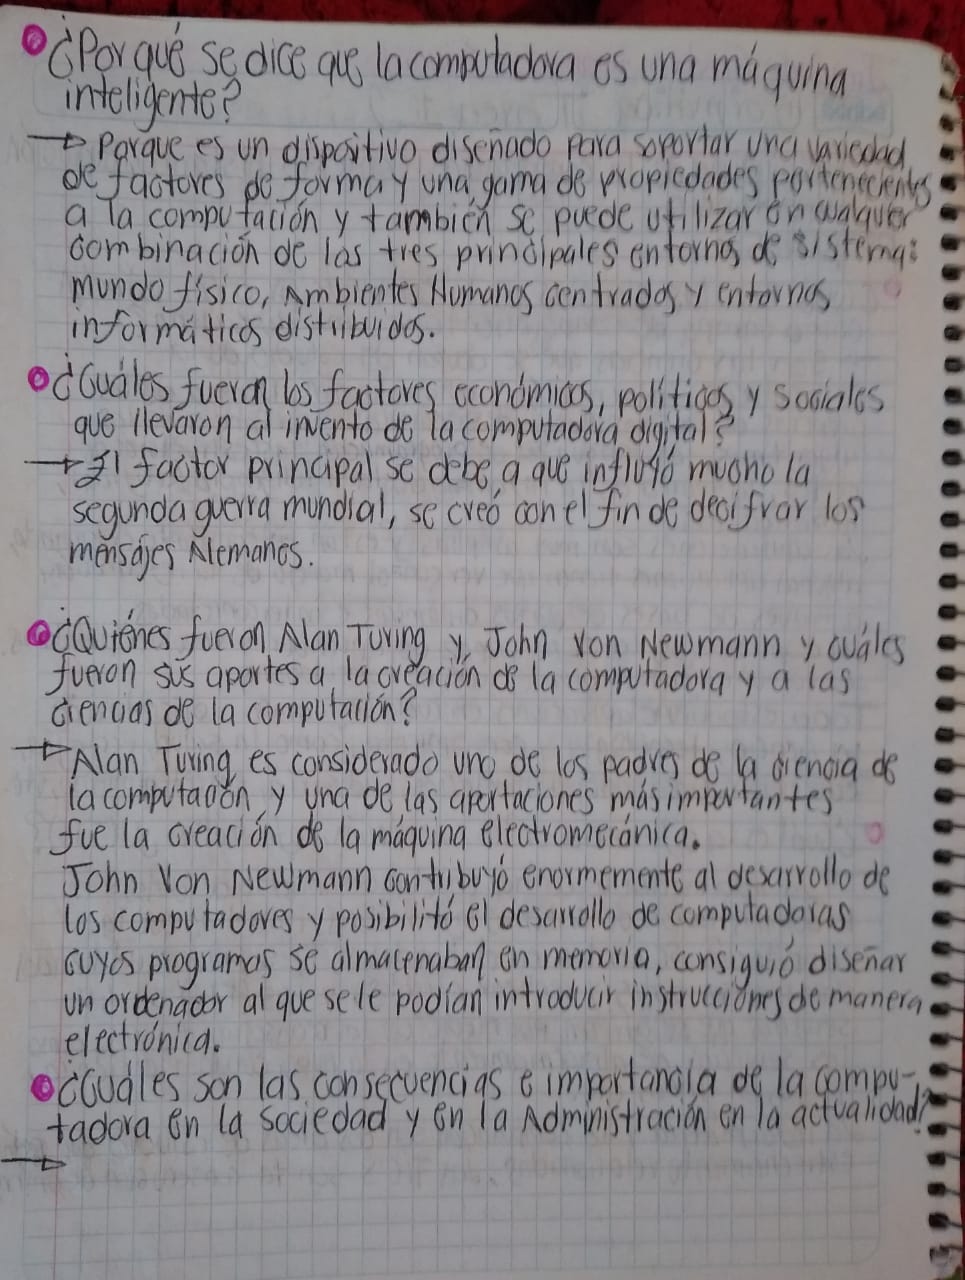 ¿Por qué se dice que la computadora es una máquina
inteligente?
→ Porque es un dispositivo diseñado para soportar una variedad
de factores de forma y una gama de propiedades pertenecientes
a la computación y también se puede utilizar en cualquier
combinación de las tres principales entornos de sistema:
mundo físico, Ambientes Humanos centrados y entornos
informáticos distribuidos.
¿Cuáles fueron los factores económicos, políticos y sociales
que llevaron al invento de la computadora digital?
→ El factor principal se debe a que influyó mucho la
segunda guerra mundial, se creó con el fin de decifrar los
mensajes Alemanes.
¿Quiénes fueron Alan Turing y John Von Newmann y cuáles
fueron sus aportes a la creación de la computadora y a las
ciencias de la computación?
→ Alan Turing es considerado uno de los padres de la ciencia de
la computación y una de las aportaciones más importantes
fue la creación de la máquina electromecánica.
John Von Newmann contribuyó enormemente al desarrollo de
los computadores y posibilitó el desarrollo de computadoras
cuyos programas se almacenaban en memoria, consiguió diseñar
un ordenador al que se le podían introducir instrucciones de manera
electrónica.
¿Cuáles son las consecuencias e importancia de la compu-
tadora en la sociedad y en la Administración en la actualidad?
→